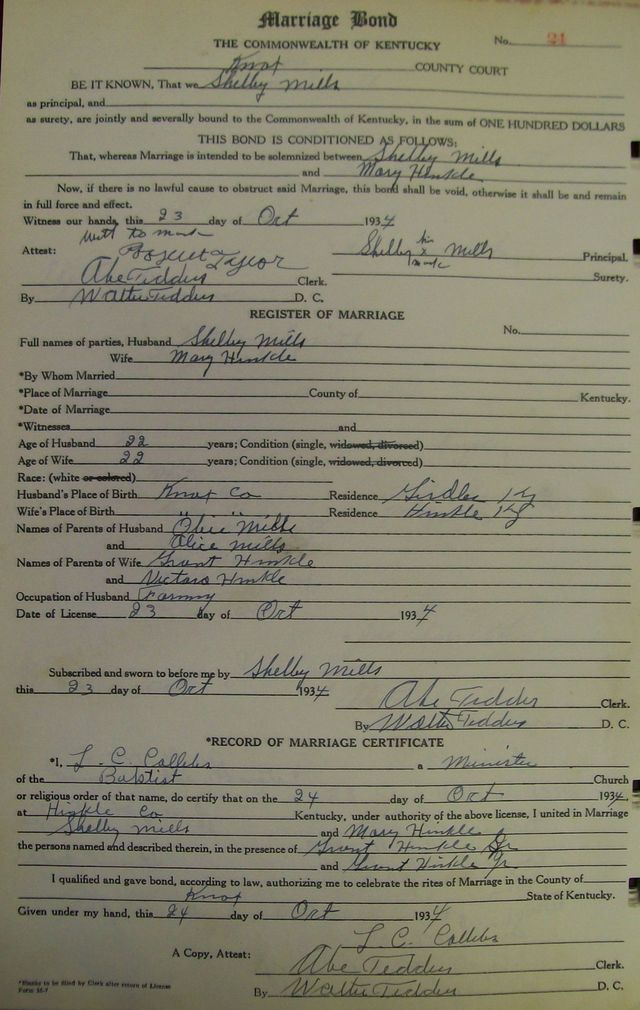 Marriage Bond
No. 21
THE COMMONWEALTH OF KENTUCKY
Knox COUNTY COURT
BE IT KNOWN, That we Shelby Mills
as principal, and
as surety, are jointly and severally bound to the Commonwealth of Kentucky, in the sum of ONE HUNDRED DOLLARS
THIS BOND IS CONDITIONED AS FOLLOWS:
That, whereas Marriage is intended to be solemnized between Shelby Mills
and Mary Hinkle
Now, if there is no lawful cause to obstruct said Marriage, this bond shall be void, otherwise it shall be and remain
in full force and effect.
Witness our hands, this 23 day of Oct 1934
to mark
Attest: Shelby his x mark Mills Principal.
Abe Tedders Clerk. Surety.
By Walter Tedders D. C.
REGISTER OF MARRIAGE
No.
Full names of parties, Husband Shelby Mills
Wife Mary Hinkle
*By Whom Married
*Place of Marriage County of Kentucky.
*Date of Marriage
*Witnesses and
Age of Husband 22 years; Condition (single, widowed, divorced)
Age of Wife 22 years; Condition (single, widowed, divorced)
Race: (white or colored)
Husband's Place of Birth Knox Co Residence Girdler Ky
Wife's Place of Birth " " Residence Hinkle Ky
Names of Parents of Husband Mills
and Alice Mills
Names of Parents of Wife Grant Hinkle
and Hinkle
Occupation of Husband Farming
Date of License 23 day of Oct 1934
Subscribed and sworn to before me by Shelby Mills
this 23 day of Oct 1934 Abe Tedders Clerk.
By Walter Tedders D. C.
*RECORD OF MARRIAGE CERTIFICATE
*I, L. C. a Minister
of the Baptist Church
or religious order of that name, do certify that on the 24 day of Oct 1934,
at Hinkle Co Kentucky, under authority of the above license, I united in Marriage
Shelby Mills and Mary Hinkle
the persons named and described therein, in the presence of Grant Hinkle Sr
and Grant Hinkle Jr
I qualified and gave bond, according to law, authorizing me to celebrate the rites of Marriage in the County of
Knox State of Kentucky.
Given under my hand, this 24 day of Oct 1934
L. C.
A Copy, Attest: Abe Tedders Clerk.
By Walter Tedders D. C.
*Blanks to be filled by Clerk after return of License